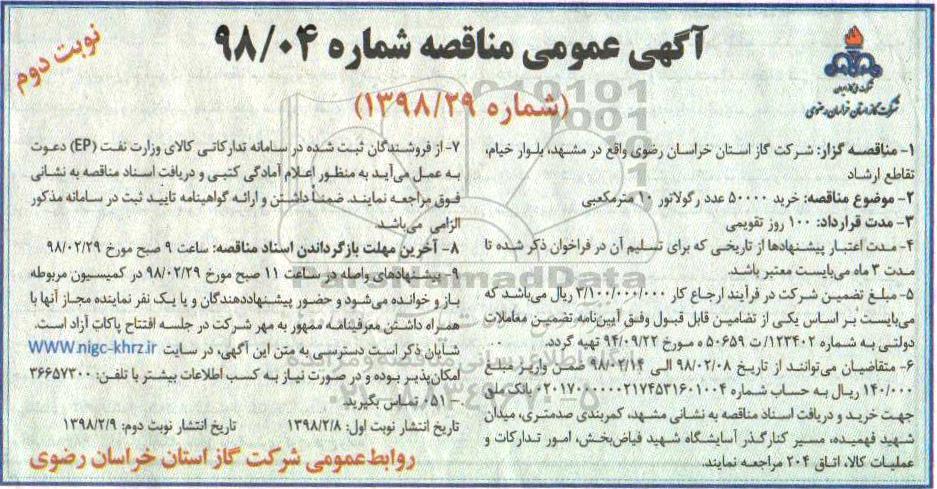 آگهی عمومی مناقصه شماره ۹۸/۰۴
نوبت دوم
(شماره ۱۳۹۸/۲۹)
شرکت گاز استان خراسان رضوی
۱- مناقصه گزار: شرکت گاز استان خراسان رضوی واقع در مشهد، بلوار خیام،
تقاطع ارشاد
۲- موضوع مناقصه: خرید ۵۰۰۰۰ عدد رگولاتور ۱۰ مترمکعبی
۳- مدت قرارداد: ۱۰۰ روز تقویمی
۴- مدت اعتبار پیشنهادها از تاریخی که برای تسلیم آن در فراخوان ذکر شده تا
مدت ۳ ماه می‌بایست معتبر باشد.
۵- مبلغ تضمین شرکت در فرآیند ارجاع کار ۳/۱۰۰/۰۰۰/۰۰۰ ریال می‌باشد که
می‌بایست بر اساس یکی از تضامین قابل قبول وفق آیین‌نامه تضمین معاملات
دولتی به شماره ۱۲۳۴۰۲/ت ۵۰۶۵۹ ه مورخ ۹۴/۰۹/۲۲ تهیه گردد.
۶- متقاضیان می‌توانند از تاریخ ۹۸/۰۲/۰۸ الی ۹۸/۰۲/۱۴ ضمن واریز مبلغ
۱۴۰/۰۰۰ ریال به حساب شماره بانک ملی
جهت خرید و دریافت اسناد مناقصه به نشانی مشهد، کمربندی صدمتری، میدان
شهید فهمیده، مسیر کنارگذر آسایشگاه شهید فیاض‌بخش، امور تدارکات و
عملیات کالا، اتاق ۲۰۴ مراجعه نمایند.
۷- از فروشندگان ثبت شده در سامانه تدارکاتی کالای وزارت نفت (EP) دعوت
به عمل می‌آید به منظور اعلام آمادگی کتبی و دریافت اسناد مناقصه به نشانی
فوق مراجعه نمایند. ضمناً داشتن و ارائه گواهینامه تایید ثبت در سامانه مذکور
الزامی می‌باشد
۸- آخرین مهلت بازگرداندن اسناد مناقصه: ساعت ۹ صبح مورخ ۹۸/۰۲/۲۹
۹- پیشنهادهای واصله در ساعت ۱۱ صبح مورخ ۹۸/۰۲/۲۹ در کمیسیون مربوطه
باز و خوانده می‌شود و حضور پیشنهاددهندگان و یا یک نفر نماینده مجاز آنها با
همراه داشتن معرفینامه ممهور به مهر شرکت در جلسه افتتاح پاکات آزاد است.
شایان ذکر است دسترسی به متن این آگهی، در سایت WWW.nigc-khrz.ir
امکان‌پذیر بوده و در صورت نیاز به کسب اطلاعات بیشتر با تلفن: ۳۶۶۵۷۳۰۰
- ۰۵۱ تماس بگیرید.
تاریخ انتشار نوبت اول: ۱۳۹۸/۲/۸ تاریخ انتشار نوبت دوم: ۱۳۹۸/۲/۹
روابط عمومی شرکت گاز استان خراسان رضوی
ParsNamadData